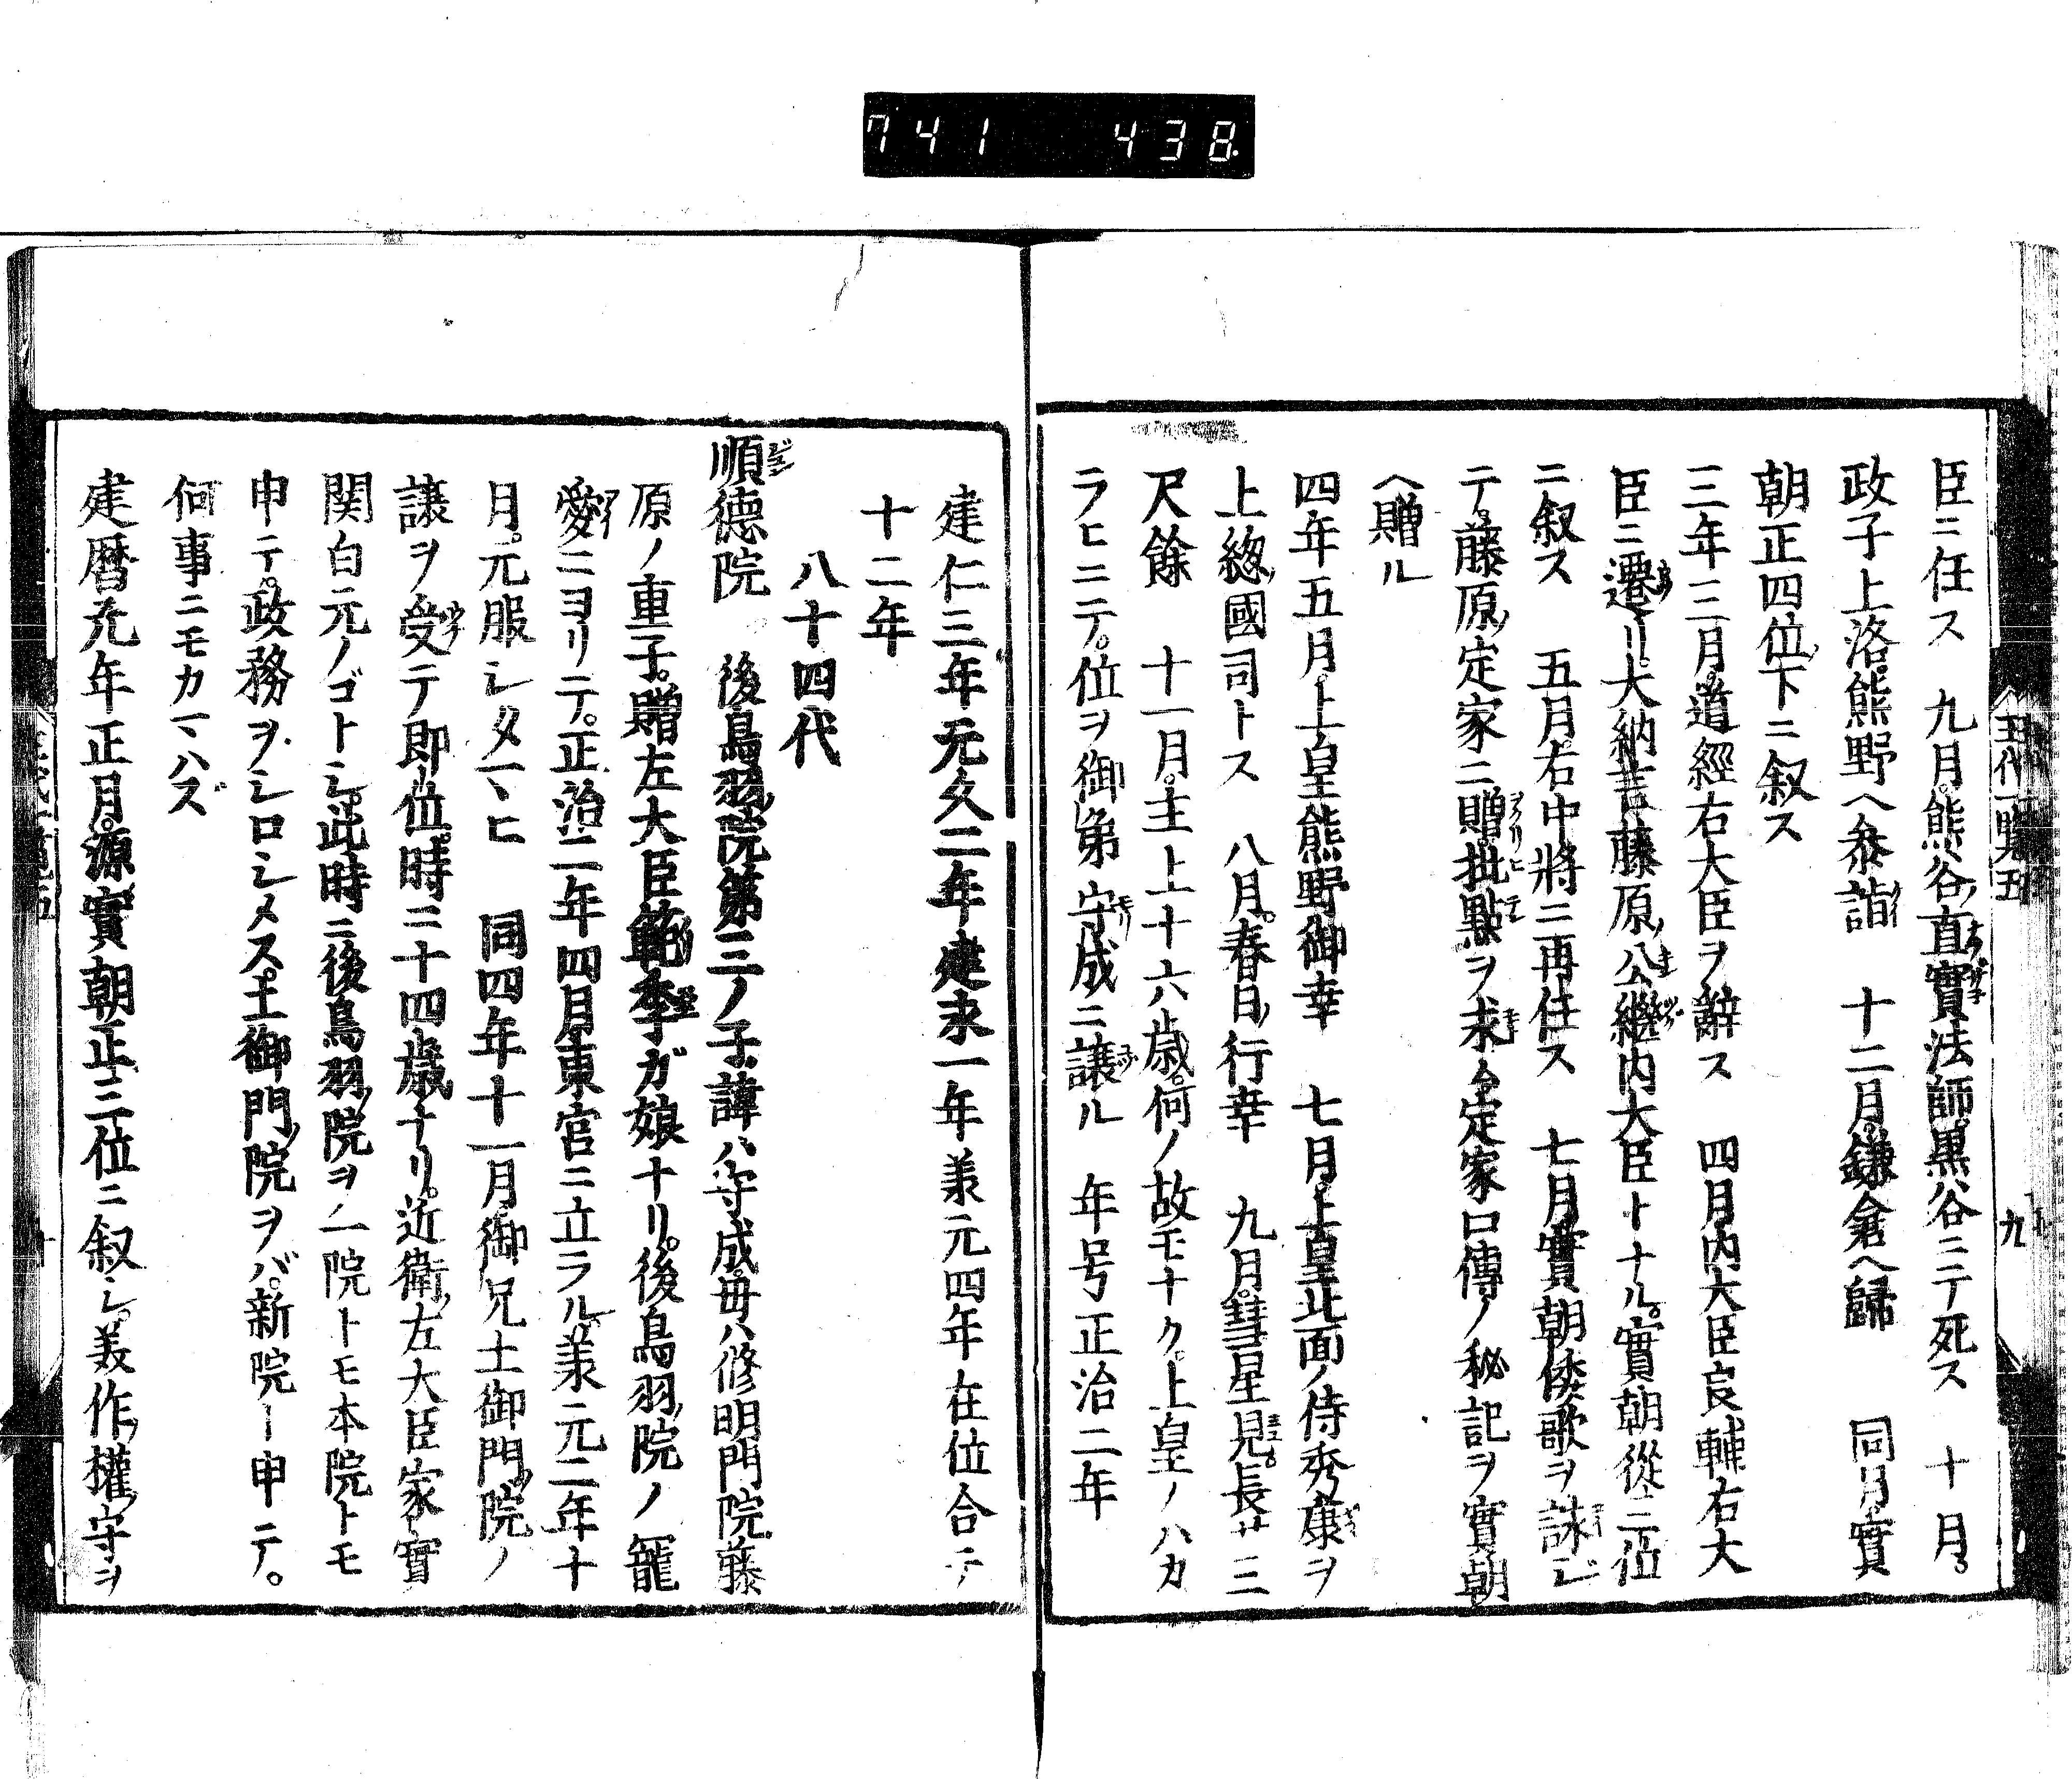 741 438
臣ニ任ス 九月。熊谷直實法師。黒谷ニテ死ス 十月。
政子上洛。熊野ヘ参詣 十二月。鎌倉ヘ歸 同月。實
朝正四位下ニ叙ス
三年三月。道經右大臣ヲ辭ス 四月。内大臣良輔右大
臣ニ遷リ。大納言藤原公繼内大臣トナル。實朝從三位
ニ叙ス 五月。右中將ニ再任ス 七月。實朝倭歌ヲ詠ジ
テ。藤原定家ニ贈。批點ヲ求ム。定家口傳ノ秘記ヲ實朝
ヘ贈ル
四年五月。上皇熊野御幸 七月。上皇北面ノ侍秀康ヲ
上總國司トス 八月。春日行幸 九月。彗星見。長サ三
尺餘 十一月。主上十六歳。何ノ故モナク。上皇ノハカ
ラヒニテ。位ヲ御弟守成ニ譲ル 年号正治二年
建仁三年元久二年建永一年羕元四年在位合テ
十二年
八十四代
順徳院 後鳥羽院第三ノ子。諱ハ守成。毋ハ修明門院藤
原ノ重子。贈左大臣範季ガ娘ナリ。後鳥羽院ノ寵
愛ニヨリテ。正治二年四月東宮ニ立ラル。羕元二年十
月。元服シタマヒ 同四年十一月。御兄土御門院ノ
譲ヲ受テ即位。時ニ十四歳ナリ。近衛左大臣家實
関白元ノゴトシ。此時ニ後鳥羽院ヲ一院トモ本院トモ
申テ。政務ヲシロシメス。土御門院ヲバ。新院ト申テ。
何事ニモカマハズ
建暦元年正月。源實朝正三位ニ叙シ。美作權守ヲ
王代一覽五
九